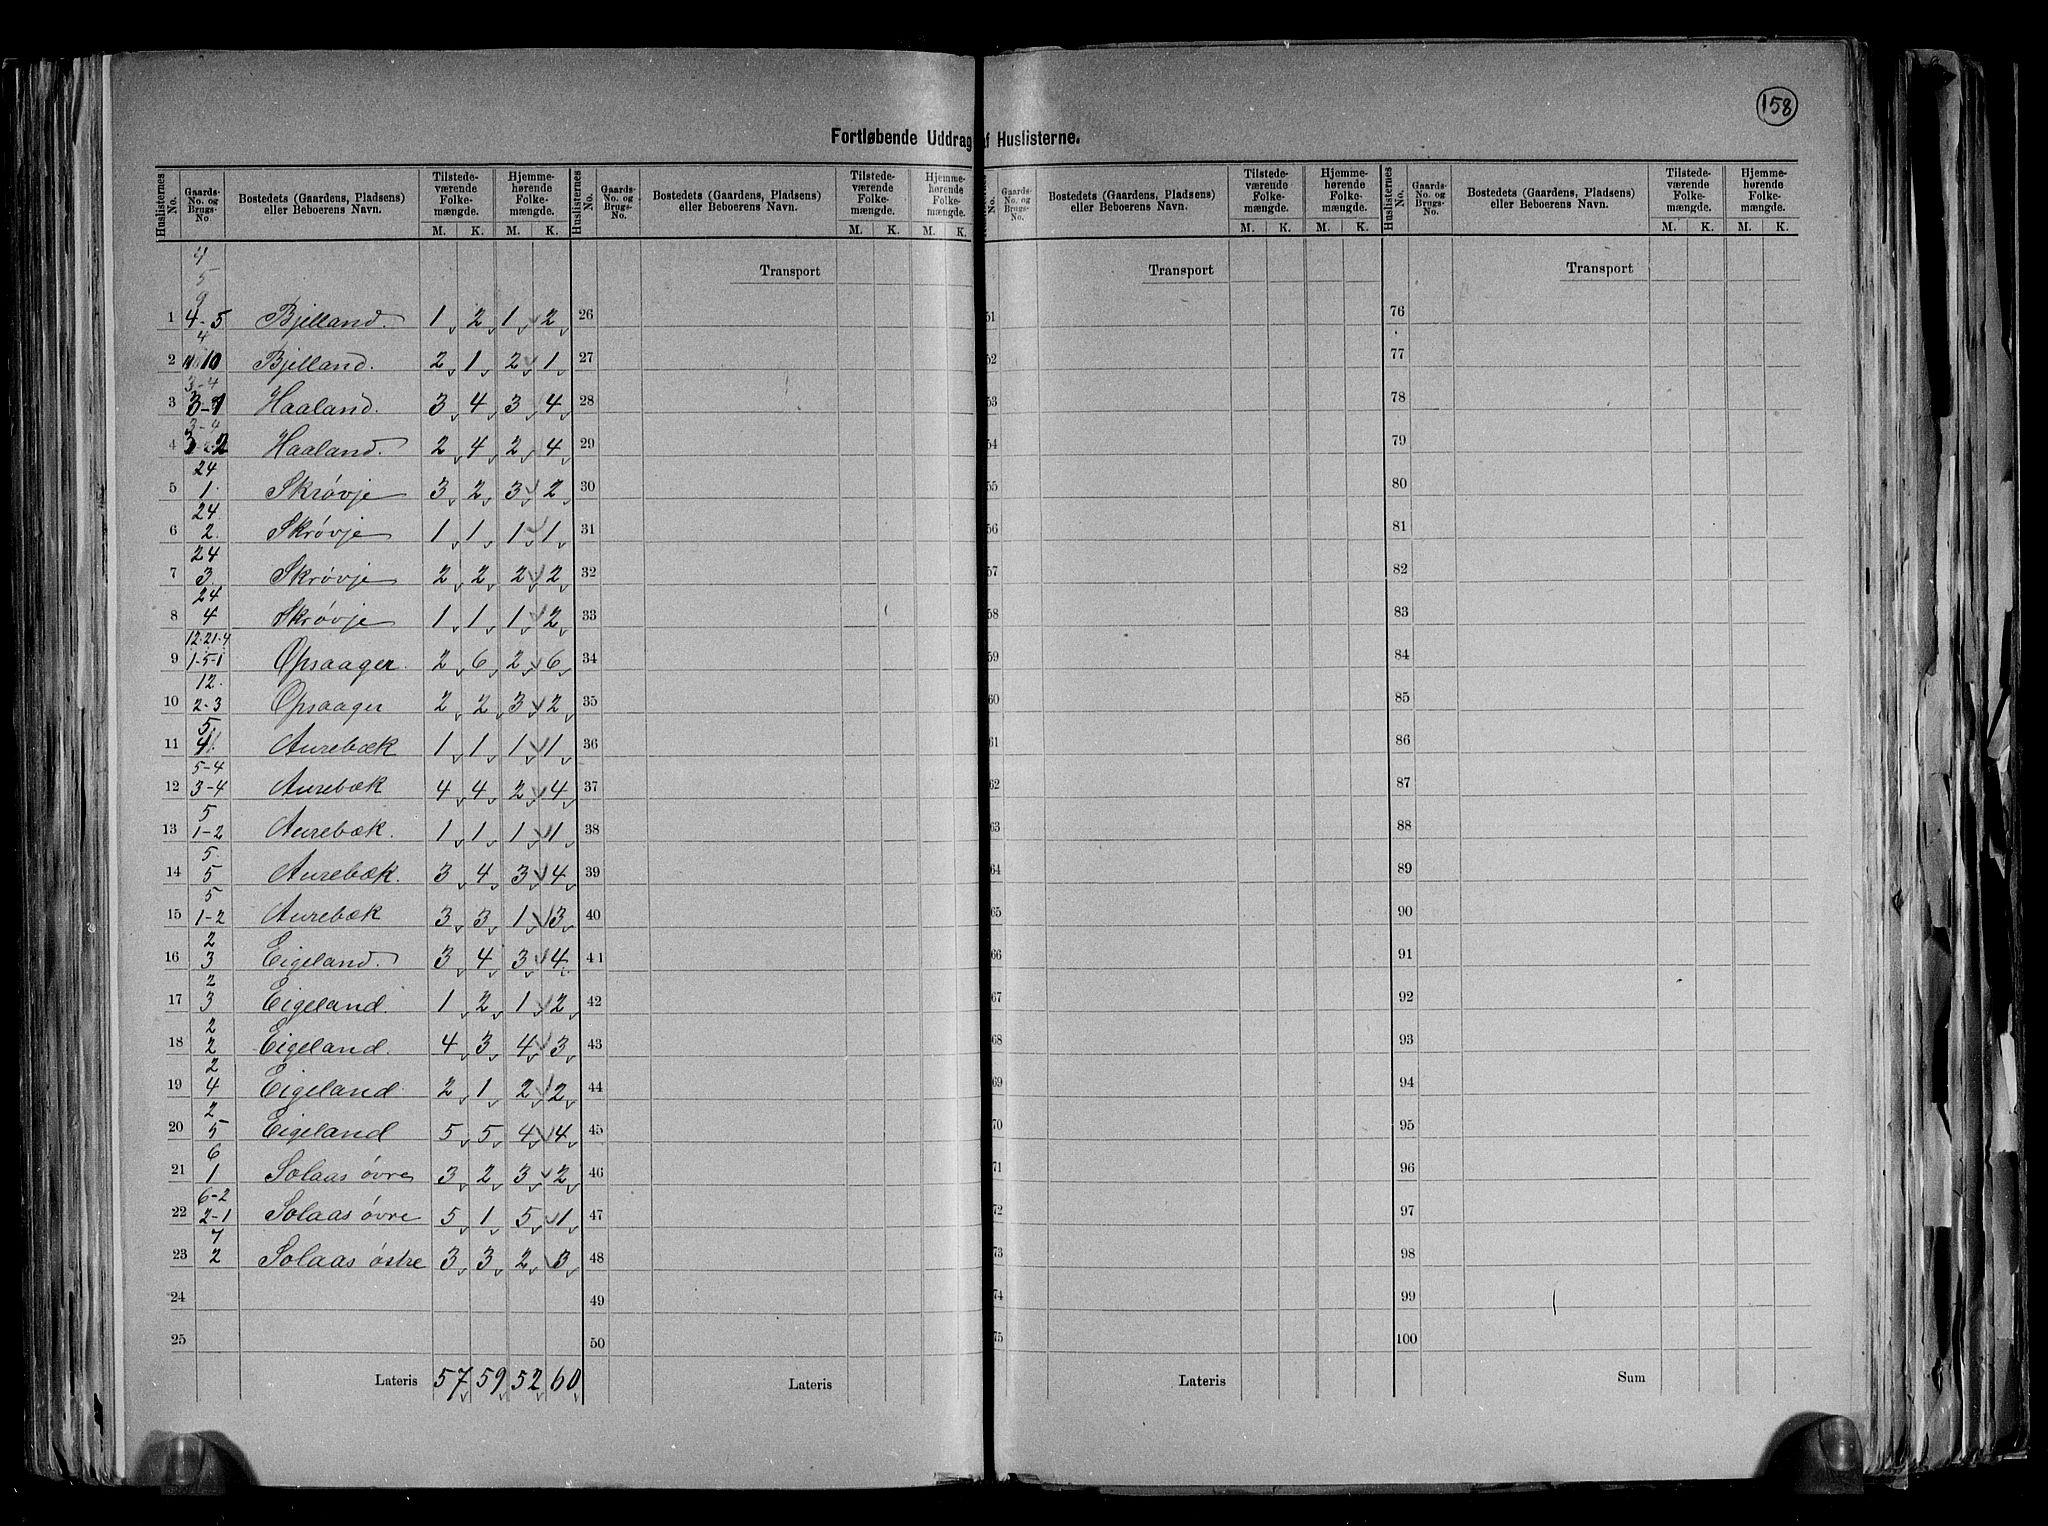 158
Fortløbende Uddrag af Huslisterne.
Huslisternes No. Gaards-No. og Brugs-No. Bostedets (Gaardens, Pladsens) eller Beboerens Navn. Tilstede-værende Folke-mængde. M. K. Hjemme-hørende Folke-mængde. M. K.
Huslisternes No. Gaards-No. og Brugs-No. Bostedets (Gaardens, Pladsens) eller Beboerens Navn. Tilstede-værende Folke-mængde. M. K. Hjemme-hørende Folke-mængde. M. K.
No. Gaards-No. og Brugs-No. Bostedets (Gaardens, Pladsens) eller Beboerens Navn. Tilstede-værende Folke-mængde. M. K. Hjemme-hørende Folke-mængde. M. K.
Huslisternes No. Gaards-No. og Brugs-No. Bostedets (Gaardens, Pladsens) eller Beboerens Navn. Tilstede-værende Folke-mængde. M. K. Hjemme-hørende Folke-mængde. M. K.
4
5 Transport Transport Transport
9
1 4-5 Bjelland. 1 2 1 2 26 51 76
4
2 10 Bjelland. 2 1 2 1 27 52 77
3-4
3 3-1 Haaland. 3 4 3 4 28 53 78
3-4
4 3-2 Haaland. 2 4 2 4 29 54 79
24
5 1. Skrøvje 3 2 3 2 30 55 80
24
6 2. Skrøvje 1 1 1 1 31 56 81
24
7 3. Skrøvje 2 2 2 2 32 57 82
24
8 4 Skrøvje 1 1 1 2 33 58 83
12.21.4
9 1-5-1 Opsaager. 2 6 2 6 34 59 84
12.
10 2-3 Opsaager 2 2 3 2 35 60 85
5.
11 4 Aurebæk 1 1 1 1 36 61 86
5-4
12 3-4 Aurebæk 4 4 2 4 37 62 87
5
13 1-2 Aurebæk. 1 1 1 1 38 63 88
5.
14 5 Aurebæk. 3 4 3 4 39 64 89
5
15 1-2 Aurebæk 3 3 1 3 40 65 90
2
16 3 Eigeland. 3 4 3 4 41 66 91
2
17 3 Eigeland. 1 2 1 2 42 67 92
2
18 2 Eigeland. 4 3 4 3 43 68 93
2
19 4 Eigeland 2 1 2 2 44 69 94
2
20 5 Eigeland 5 5 4 4 45 70 95
6
21 1 Solaas øvre 3 2 3 2 46 71 96
6-2
22 2-1 Solaas øvre 5 1 5 1 47 72 97
7
23 2 Solaas østre 3 3 2 3 48 73 98
24 49 74 99
25 50 75 100
Lateris 57 59 52 60 Lateris Lateris Sum